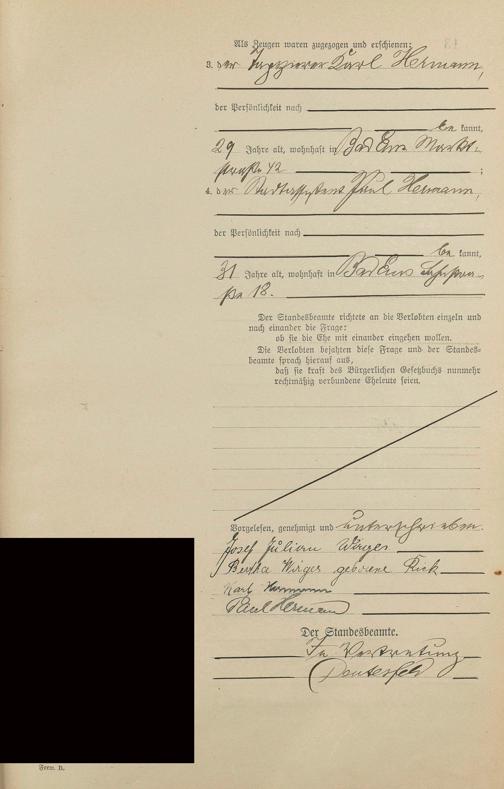 Als Zeugen waren zugezogen und erschienen:
3. der Tapezierer Karl Hermann,
der Persönlichkeit nach
be kannt,
29 Jahre alt, wohnhaft in Bad Ems Markt-
straße 42 ;
4. der Stadtassistent Paul Hermann,
der Persönlichkeit nach
be kannt,
31 Jahre alt, wohnhaft in Bad Ems Lahnstra-
ße 18.
Der Standesbeamte richtete an die Verlobten einzeln und
nach einander die Frage:
ob sie die Ehe mit einander eingehen wollen.
Die Verlobten bejahten diese Frage und der Standes-
beamte sprach hierauf aus,
daß sie kraft des Bürgerlichen Gesetzbuchs nunmehr
rechtmäßig verbundene Eheleute seien.
Vorgelesen, genehmigt und unterschrieben.
Josef Julian Wirges
Bertha Wirges geborene Fuck
Karl Hermann
Paul Hermann
Der Standesbeamte.
In Vertretung
Form. B.